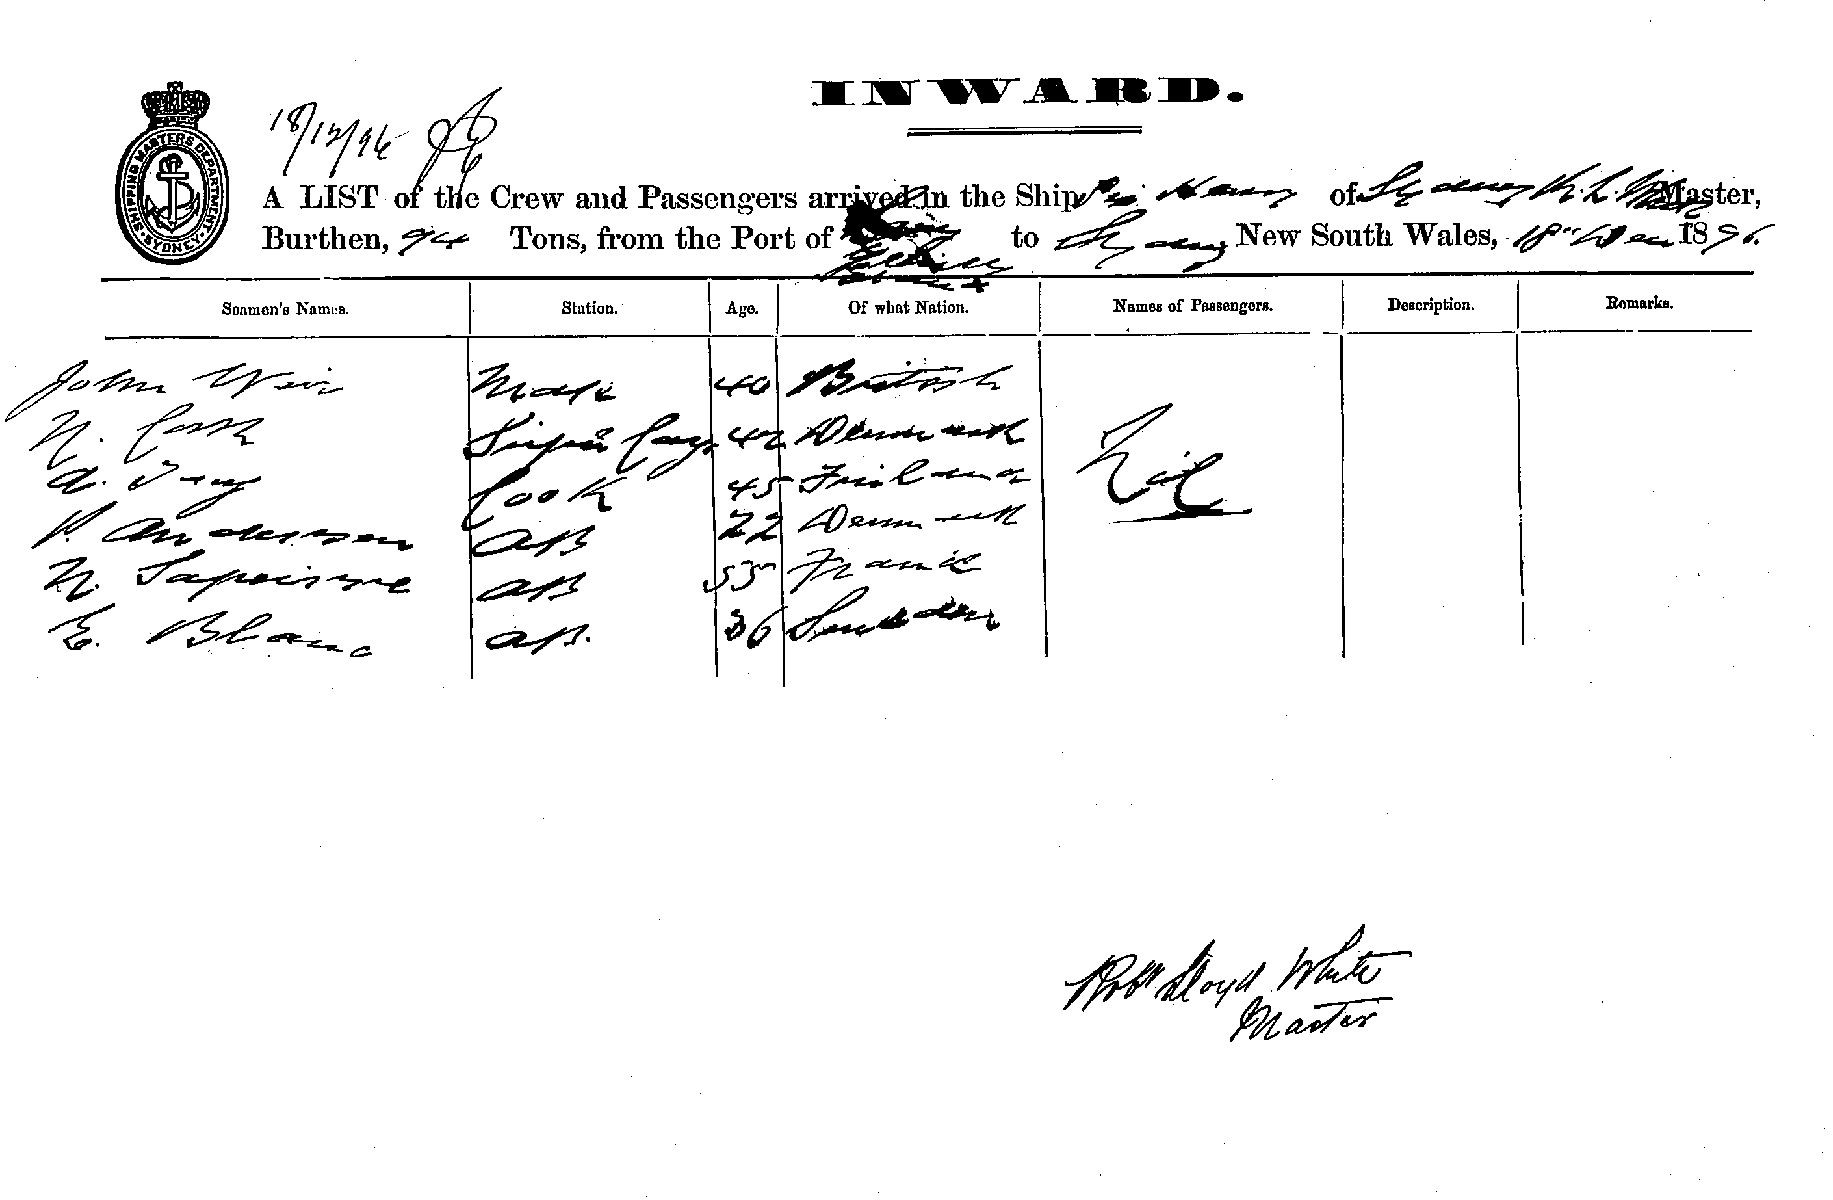 INWARD.
SHIPPING MASTERS DEPARTMENT SYDNEY
18/12/96
A LIST of the Crew and Passengers arrived in the Ship of Sydney R. L. Master,
Burthen, 94 Tons, from the Port of to Sydney New South Wales, 18th Decr 1896.
Seamen's Names. Station. Age. Of what Nation. Names of Passengers. Description. Remarks.
John Weir Mate 40 British
N. Cook 42 Denmark
A. Cook 45 Finland
P. Anderson AB 22 Denmark
N. AB 55 France
E. Blanc AB. 36 Sweden
Nil
Robt Lloyd White
Master